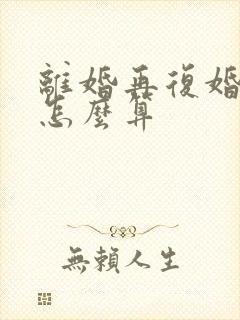 離婚再復婚
怎麼算
無賴人生